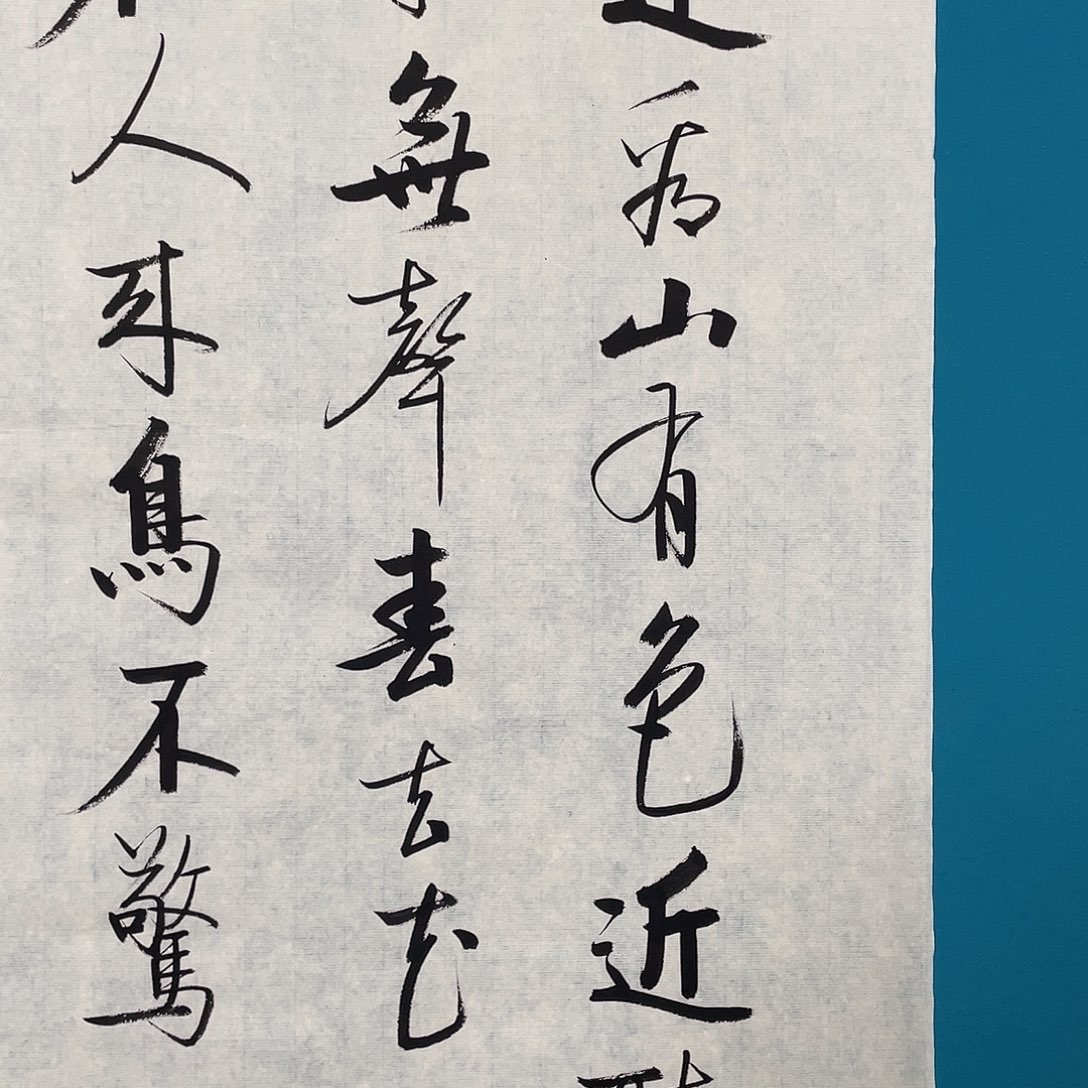 看山有色近
無聲春去花
人来鳥不驚